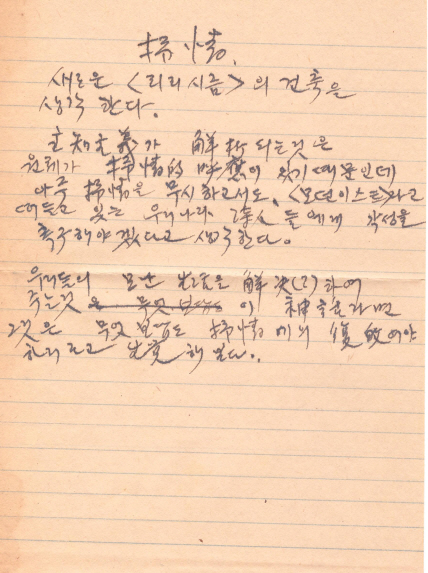 抒情.
새로운 <리리시즘>의 건축을
생각 한다.
主知主義가 解析되는것은
원래가 抒情的 이 있기 때문인데
아주 抒情은 무시 하고서도, <모던이스트>라고
떠들고 있는 우리나라 詩人들에게 각성을
촉구해야 겠다고 생각한다.
우리들의 모든 生活을 解決(?)하여
주는것 이 라면
그것은 무엇보담도 抒情에의 復 어야
하리라고 生覺해 본다..